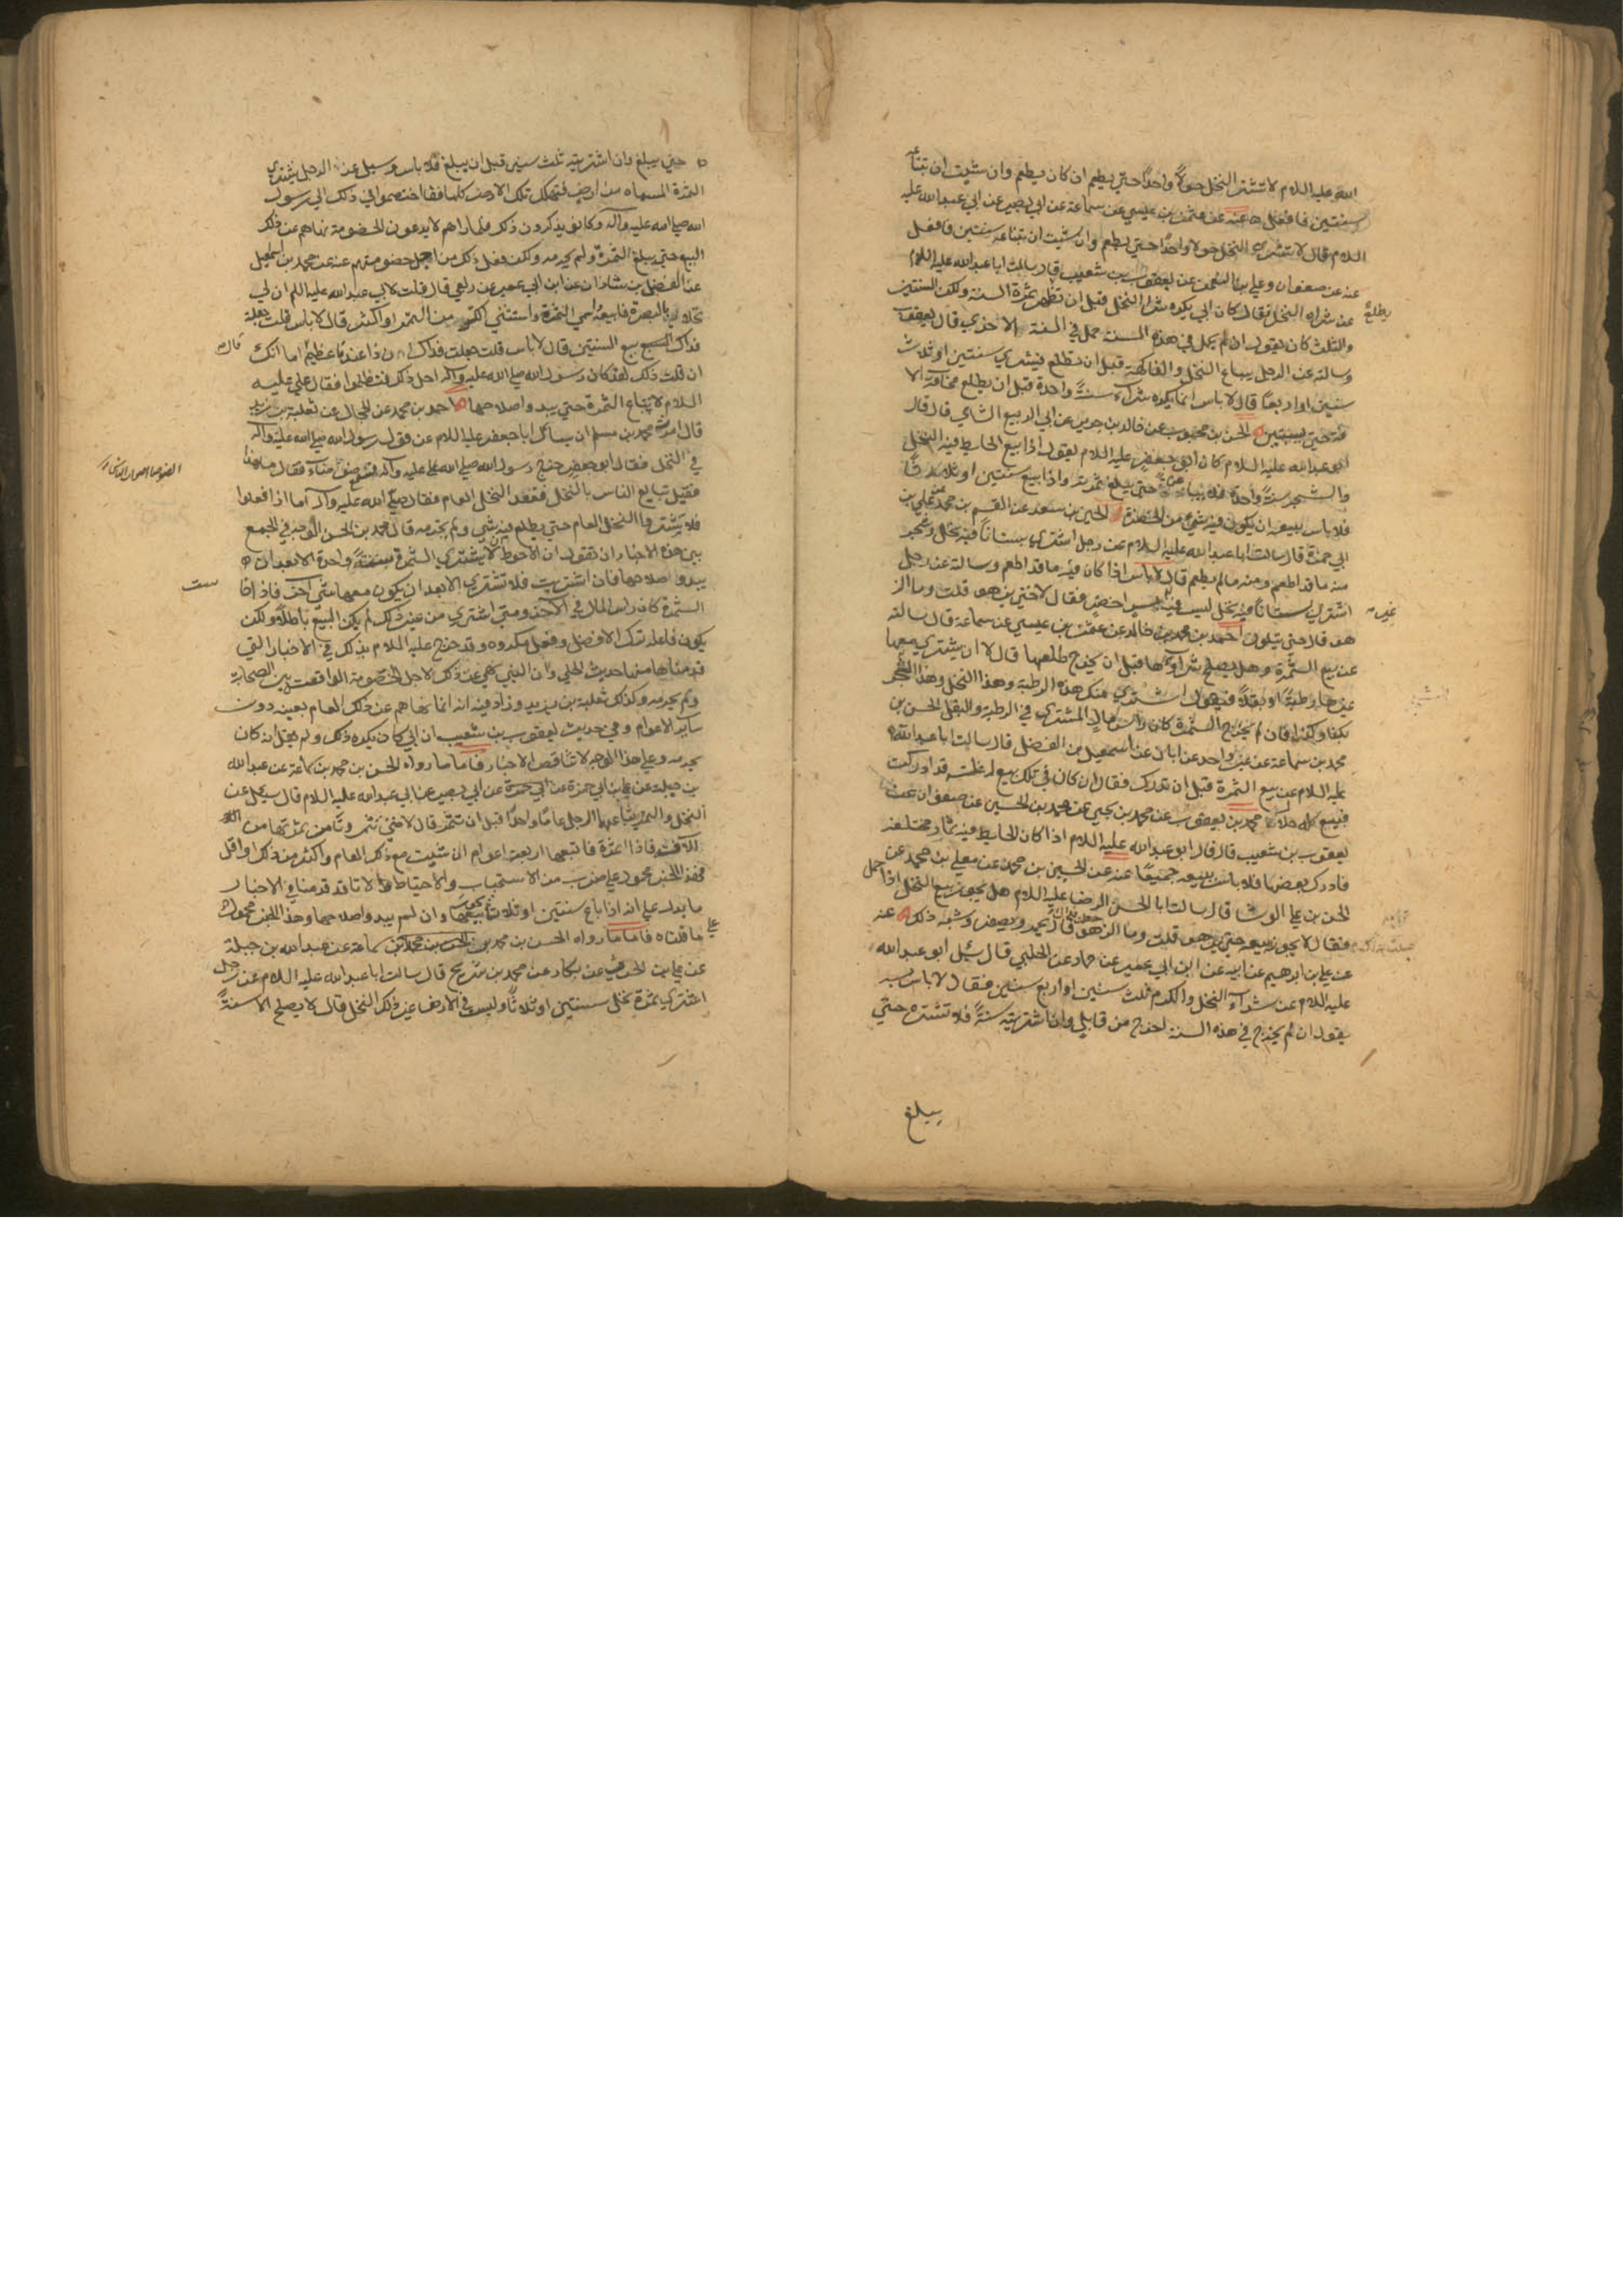 الله عليه السلام لا تشتر النخل حولا واحدا حتي يطعم ان كان يطعم وان شئت ان تبتاعه
سنتين فافعل عنه عن عثمن بن عيسي عن سماعة عن ابي بصير عن ابي عبدالله عليه
السلام قال لا تشتر النخل حولا واحدا حتي يطعم وان شئت ان تبتاعه سنتين فافعل
عنه عن صفوان وعلي بن النعمن عن يعقوب بن شعيب قال سالت ابا عبدالله عليه السلام
عن شراء النخل فقال كان ابي يكره شراء النخل قبل ان تطلع ثمرة السنة ولكن السنتين
والثلث كان يقول ان لم يحمل في هذه السنة حمل في السنة الاخري قال يعقوب
وسالته عن الرجل يبتاع النخل والفاكهة قبل ان تطلع فيشتري سنتين او ثلاث
سنين او اربعا قال لا باس انما يكره شراء سنة واحدة قبل ان يطلع مخافة الآ
فة حتي يستبين الحسن بن محبوب عن خالد بن جرير عن ابي الربيع الشامي قال قال
ابو عبدالله عليه السلام كان ابو جعفر عليه السلام يقول اذا بيع الحايط فيه النخل
والشجر سنة واحدة فلا يباعن حتي يبلغ ثمرته واذا بيع سنتين او ثلاثا
فلا باس ببيعه ان يكون فيه شي من الخضرة الحسين بن سعيد عن القسم بن محمد عن علي بن
ابي حمزة قال سالت ابا عبدالله عليه السلام عن رجل اشتري بستانا فيه نخل وشجر
منه ما قد اطعم ومنه ما لم يطعم قال لا باس اذا كان فيه ما قد اطعم وسالته عن رجل
اشتري بستانا فيه نخل ليس فيه غير بسر اخضر فقال لا حتي يزهو قلت وما الز
هو قال حتي يتلون احمد بن محمد بن خالد عن عثمن بن عيسي عن سماعة قال سالته
عن بيع الثمرة وهل يصلح شراؤها قبل ان يخرج طلعها قال لا الا ان يشتري معها
غيرها رطبة او بقلا فيقول اشتري منك هذه الرطبة وهذا النخل وهذا الشجر
بكذا وكذا فان لم يخرج الثمرة كان راس مال المشتري في الرطبة والبقل الحسن بن
محمد بن سماعة عن غير واحد عن ابان عن اسمعيل بن الفضل قال سالت ابا عبدالله
عليه السلام عن بيع الثمرة قبل ان تدرك فقال ان كان في تلك بيع له غلة قد ادركت
فبيع كله حلال محمد بن يعقوب عن محمد بن يحيي عن محمد بن الحسين عن صفوان عن
يعقوب بن شعيب قال قال ابو عبدالله عليه السلام اذا كان الحايط فيه ثمار مختلفة
فادرك بعضها فلا باس ببيعه جميعا عنه عن الحسين بن محمد عن معلي بن محمد عن
الحسن بن علي الوشا قال سالت ابا الحسن الرضا عليه السلام هل يجوز بيع النخل اذا حمل
فقال لا يجوز بيعه حتي يزهو قلت وما الزهو جعلت فداك قال يحمر ويصفر وشبه ذلك عنه
عن علي بن ابرهيم عن ابيه عن ابن ابي عمير عن حماد عن الحلبي قال سئل ابو عبدالله
عليه السلام عن شراء النخل والكرم ثلث سنين او اربع سنين فقال لا باس به
يقول ان لم يخرج في هذه السنة اخرج من قابل وان اشتريته سنة فلا تشتره حتي
يبلغ
حتي يبلغ وان اشتريته ثلث سنين قبل ان يبلغ فلا باس وسيل عن الرجل يشتري
الثمرة المسماة من ارض فتهلك تلك الارض كلها فقال اختصموا في ذلك الي رسول
الله صلي الله عليه وآله وكانوا يذكرون ذلك فلما راهم لا يدعون الخصومة نهاهم عن ذلك
البيع حتي يبلغ الثمرة ولم يحرمه ولكن فعل ذلك من اجل خصومتهم عنه عن محمد بن اسمعيل
عن الفضل بن شاذان عن ابن ابي عمير عن ربعي قال قلت لابي عبدالله عليه السلم ان لي
نخلا بالبصرة فابيعه واسمي الثمرة واستثني الكر من التمر او اكثر قال لا باس قلت جعلت
فداك بيع السنتين قال لا باس قلت جعلت فداك ان ذا عندنا عظيم قال اما انك
ان قلت ذلك لقد كان رسول الله صلي الله عليه وآله احل ذلك فتظالموا فقال علي عليه
السلام لا يباع الثمرة حتي يبدو صلاحها احمد بن محمد عن الحجال عن ثعلبة بن زيد
قال امرت محمد بن مسلم ان يسال ابا جعفر عليه السلام عن قول رسول الله صلي الله عليه وآله
في النخل فقال ابو جعفر خرج رسول الله صلي الله عليه وآله فسمع ضوضاء فقال ما هذا
فقيل تبايع الناس بالنخل فقعد النخل العام فقال صلي الله عليه وآله اما اذا فعلوا
فلا يشتروا النخل العام حتي يطلع فيه شي ولم يحرمه قال محمد بن الحسن الوجه في الجمع
بين هذه الاخبار ان نقول ان الاحوط الا يشتري الثمرة سنة واحدة الا بعد ان
يبدو صلاحها فان اشتريت فلا تشتري الا بعد ان يكون معها شي آخر فاذا خاست
الثمرة كان راس المال في الآخر ومتي اشتري من غير ذلك لم يكن البيع باطلا ولكن
يكون فاعله ترك الافضل وفعل مكروه وقد صرح عليه السلام بذلك في الاخبار التي
قدمناها منها حديث الحلبي وان النبي نهي عن ذلك لاجل الخصومة الواقعة بين الصحابة
ولم يحرمه وكذلك ثعلبة بن زيد وزاد فيه انه انما نهاهم عن ذلك العام بعينه دون
ساير الاعوام وفي حديث يعقوب بن شعيب ان ابي كان يكره ذلك ولم يقل انه كان
يحرمه وعلي هذا الوجه لا تناقض الاخبار فاما ما رواه الحسن بن محمد بن سماعة عن عبدالله
بن جبلة عن علي بن ابي حمزة عن ابي بصير عن ابي عبدالله عليه السلام قال سئل عن
النخل والثمر يبتاعها الرجل عاما واحدا قبل ان تثمر قال لا حتي تثمر وتامن ثمرتها من
الآفة فاذا اثمرت فابتعها اربعة اعوام ان شئت مع ذلك العام واكثر من ذلك او اقل
فهذا الخبر محمول علي ضرب من الاستحباب والاحتياط لانا قد قدمنا في الاخبار
ما يدل علي انه اذا باع سنتين او ثلاثا يجوز بيعها وان لم يبدو صلاحها وهذا الخبر محمول علي
ما قلناه فاما ما رواه الحسن بن محمد بن سماعة عن عبدالله بن جبلة
عن علي بن الحرث عن بكار عن محمد بن شريح قال سالت ابا عبدالله عليه السلام عن رجل
اشتري ثمرة نخل سنتين او ثلاثا وليس في الارض غير ذلك النخل قال لا يصلح الا سنة